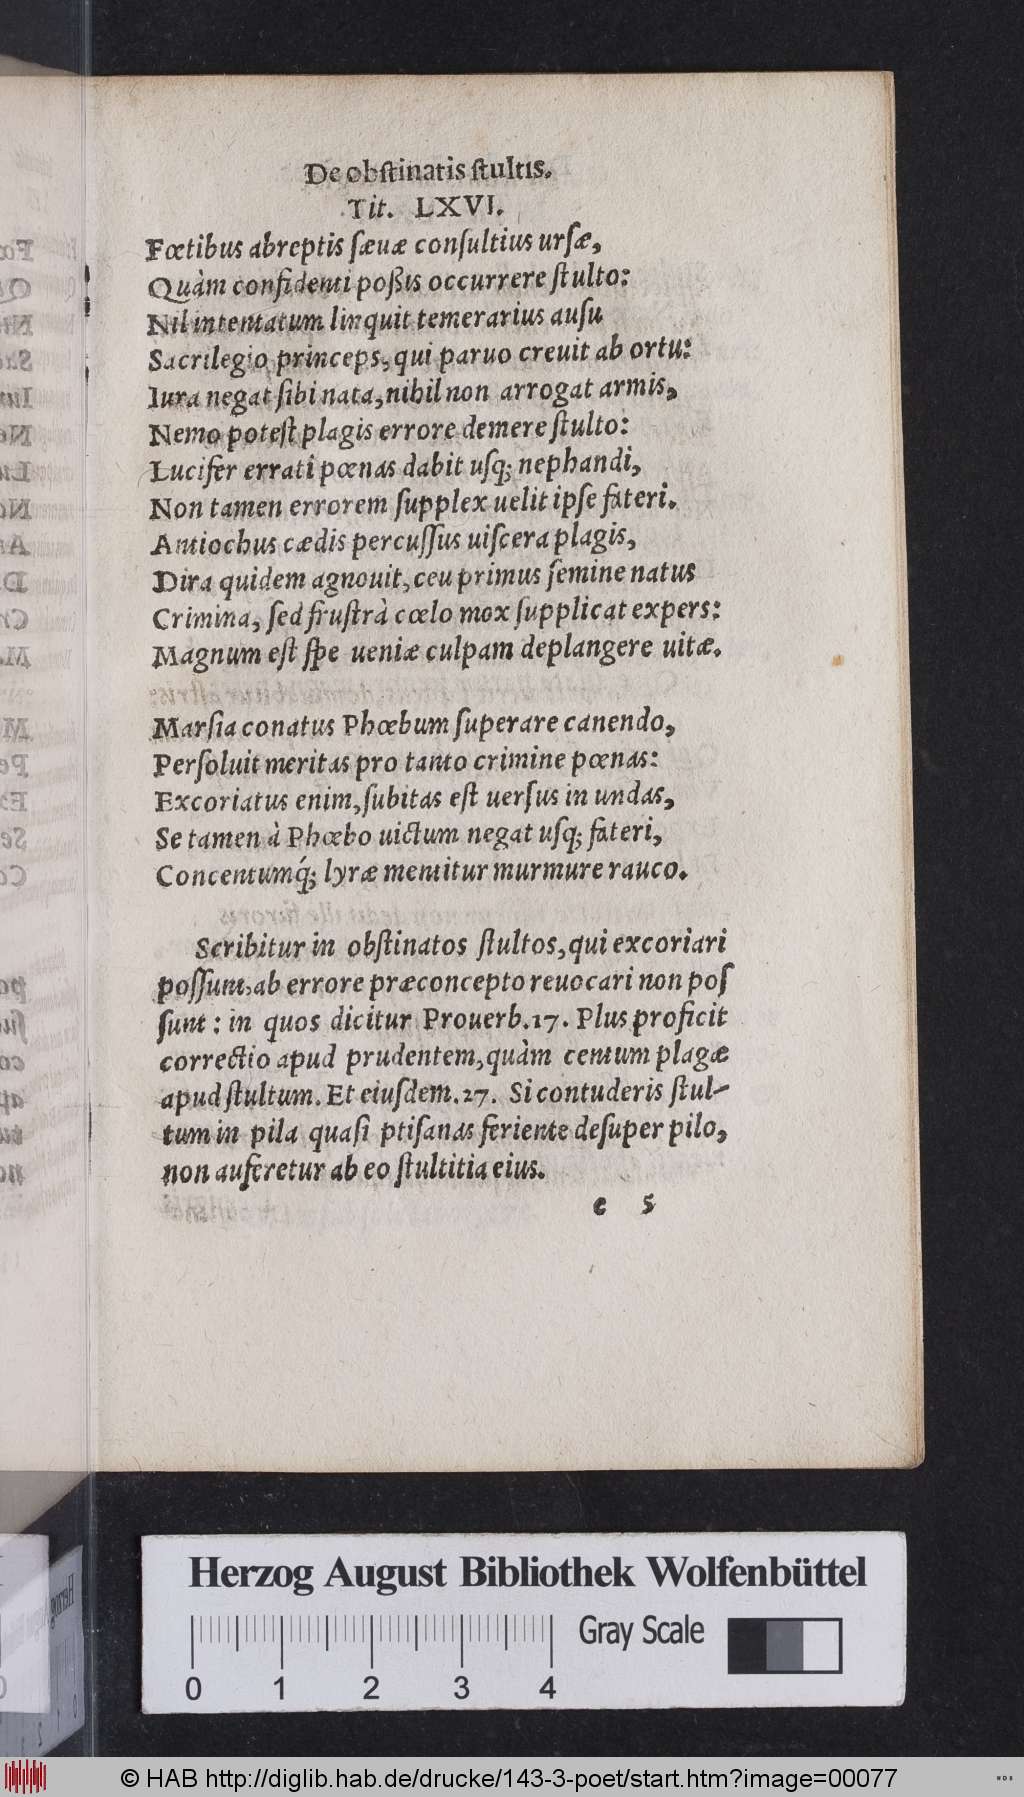 De obſtinatis ſtultis.
Tit. LXVI.
Fœtibus abreptis ſæuæ conſultius urſæ,
Quàm confidenti poßis occurrere ſtulto:
Nil intentatum linquit temerarius auſu
Sacrilegio princeps, qui paruo creuit ab ortu:
Iura negat ſibi nata, nihil non arrogat armis,
Nemo poteſt plagis errore demere ſtulto:
Lucifer errati pœnas dabit uſq; nephandi,
Non tamen errorem ſupplex uelit ipſe fateri.
Antiochus cædis percuſſus uiſcera plagis,
Dira quidem agnouit, ceu primus ſemine natus
Crimina, ſed fruſtrà cœlo mox ſupplicat expers:
Magnum eſt ſpe ueniæ culpam deplangere uitæ.
Marſia conatus Phœbum ſuperare canendo,
Perſoluit meritas pro tanto crimine pœnas:
Excoriatus enim, ſubitas eſt uerſus in undas,
Se tamen à Phœbo uictum negat uſq; fateri,
Concentumq́; lyræ mentitur murmure rauco.
Scribitur in obſtinatos ſtultos, qui excoriari
poſſunt, ab errore præconcepto reuocari non poſ
ſunt: in quos dicitur Prouerb. 17. Plus proficit
correctio apud prudentem, quàm centum plagæ
apud ſtultum. Et eiuſdem. 27. Si contuderis ſtul-
tum in pila quaſi ptiſanas feriente deſuper pilo,
non auferetur ab eo ſtultitia eius.
e 5
Herzog August Bibliothek Wolfenbüttel
Gray Scale
0 1 2 3 4
© HAB http://diglib.hab.de/drucke/143-3-poet/start.htm?image=00077